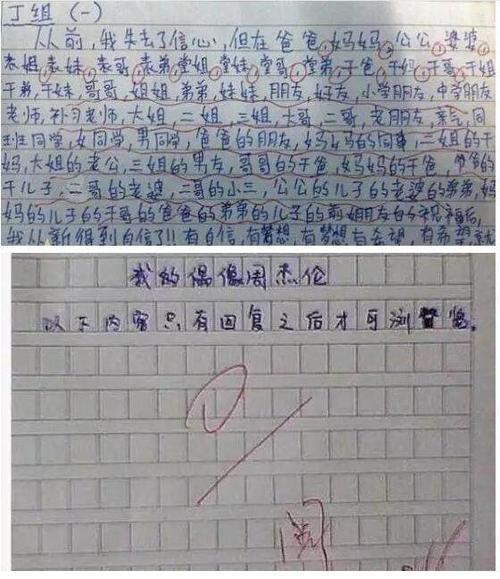 丁组 (一)
从前,我失去了信心,但在爸爸,妈妈,公公,婆婆,
表姐,表妹,表哥,表弟,堂姐,堂妹,堂哥,堂弟,干爸,干妈,干哥,干姐
干弟,干妹,哥哥,姐姐,弟弟,妹妹,朋友,好友,小学朋友,中学朋友
老师,补习老师,大姐,二姐,三姐,大哥,二哥,老朋友,亲戚,同
班同学,女同学,男同学,爸爸的朋友,妈妈的同事,二姐的干
妈,大姐的老公,三姐的男友,哥哥的干爸,妈妈的干爸,爷爷的
干儿子,二哥的老婆,二哥的小三,公公的儿子的老婆的弟弟,妈
妈的儿子的干哥的爸爸的弟弟的儿子的前姐朋友的祝福后,
我从新得到自信了!!有自信,有梦想,有梦想有希望,有希望就
我的偶像周杰伦
以下内容只有回复之后才可浏览。
阅